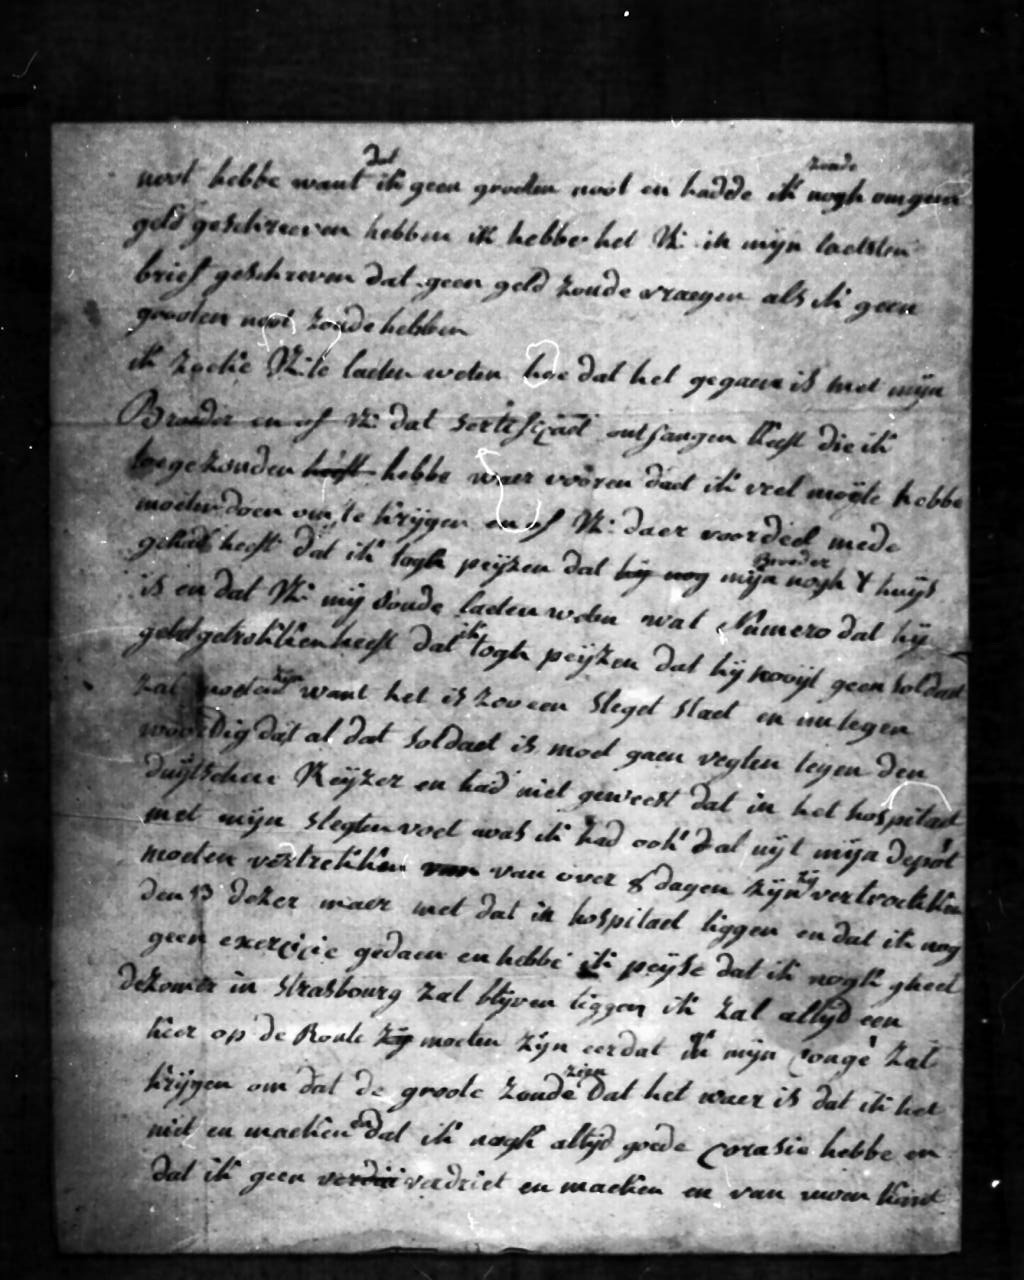 noot hebbe want dat ik geen grooten noot en hadde ik zoude nogh om geen
geld geschreeven hebben ik hebbe het Vl: in mijn laetsten
brief geschreven dat geen geld zoude vraegen als ik geen
grooten noot zoude hebben
ik zoeke Vl: te laeten weten hoe dat het gegaen is met mijn
Broeder en of Vl: dat sertificaet ontfangen heeft die ik
toegezonden heeft hebbe waer vooren dat ik veel moyte hebbe
moeten doen om te krijgen en of Vl: daer voordeel mede
gehad heeft dat ik togh peijzen dat hij nog mijn Broeder nogh t huijs
is en dat Vl: mij soude laeten weten wat Numero dat hij
getrokken heeft dat ik togh peijzen dat hij nooijt geen soldaet
zal moeten zijn want het is zoo een slegt staet en nu tegen
woordig dat al dat soldaet is moet gaen vegten tegen den
duijtschen Keijzer en had niet geweest dat in het hospitael
met mijn slegten voet was ik had ook dat uijt mijn depot
moeten vertrekken van van over 8 dagen zijn zij vertrocken
den 13 dezer maer met dat in hospitael liggen en dat ik nog
geen exercicie gedaen en hebbe ik peijse dat ik nogh gheel
dezomer in strasbourg zal blijven liggen ik zal altijd een
keer op de Route zij moeten zijn eer dat ik mijn Conge zal
krijgen om dat de groote zoude zijn dat het waer is dat ik het
niet en maeken en dat ik nogh altijd goede Corasie hebbe en
dat ik geen verdii verdriet en maeken en van uwen kant